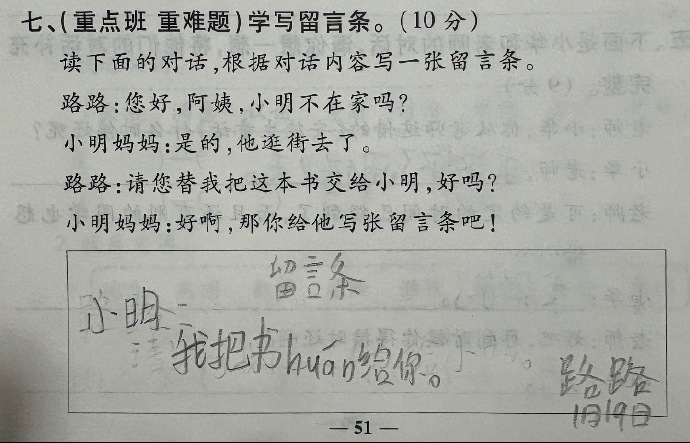 七、(重点班 重难题)学写留言条。(10分)
读下面的对话,根据对话内容写一张留言条。
路路:您好,阿姨,小明不在家吗?
小明妈妈:是的,他逛街去了。
路路:请您替我把这本书交给小明,好吗?
小明妈妈:好啊,那你给他写张留言条吧!
留言条
小明:
我把书huán给你。
路路
1月19日
— 51 —